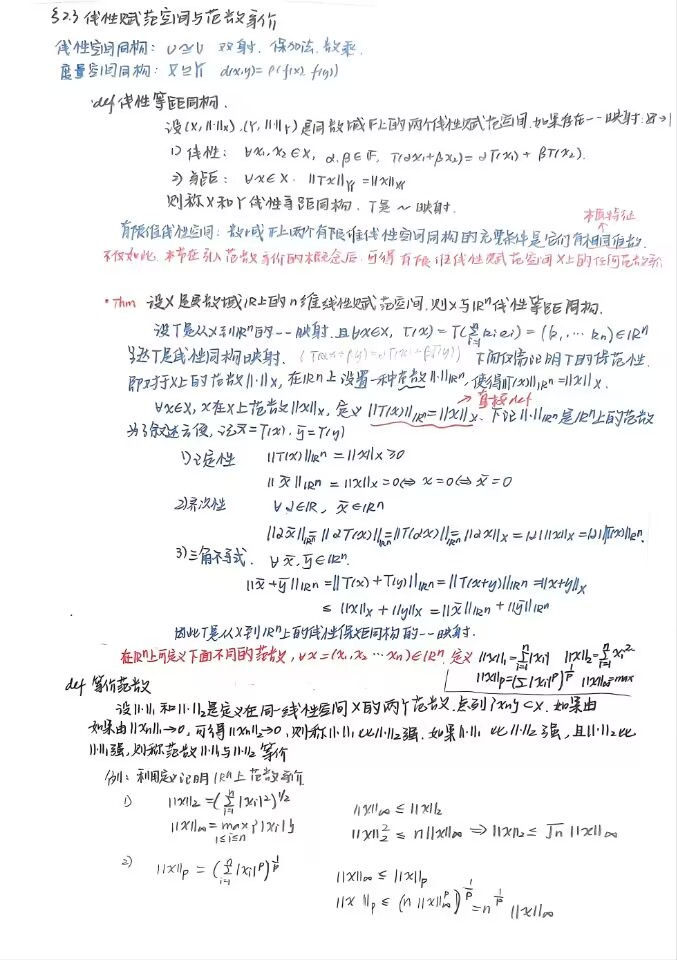 §2.3 线性赋范空间与范数等价
线性空间同构: U≅V 双射. 保加法. 数乘
度量空间同构: X≅Y d(x,y)=ρ(f(x), f(y))
def 线性等距同构.
设(X,||·||x), (Y,||·||Y)是同数域F上的两个线性赋范空间. 如果存在一一映射
1) 线性: ∀x₁,x₂∈X, α,β∈F, T(αx₁+βx₂)=αT(x₁)+βT(x₂).
2) 等距: ∀x∈X. ||Tx||Y=||x||X
则称X和Y线性等距同构. T是~映射.
本质特征
有限维线性空间: 数域F上两个有限维线性空间同构的充要条件是它们有相同维数.
不仅如此. 本节在引入范数等价的概念后, 可得有限维线性赋范空间X上的任何范数等价
*Thm 设X是实数域ℝ上的n维线性赋范空间. 则X与ℝⁿ线性等距同构.
设T是从X到ℝⁿ的一一映射. 且∀x∈X, T(x)=T(∑ᵢ₌₁ⁿ kᵢeᵢ)=(k₁,…kₙ)∈ℝⁿ
易述T是线性同构映射. (T(αx+βy)=αT(x)+βT(y)) 下面仅需证明T的保范性.
即对于X上的范数||·||x, 在ℝⁿ上设置一种范数||·||ℝⁿ, 使得||T(x)||ℝⁿ=||x||x.
直接def
∀x∈X, x在X上范数||x||x, 定义||T(x)||ℝⁿ=||x||x. 下证||·||ℝⁿ是ℝⁿ上的范数
为了叙述方便, 记x̄=T(x). ȳ=T(y)
1) 正定性 ||T(x)||ℝⁿ=||x||x≥0
||x̄||ℝⁿ=||x||x=0⇔x=0⇔x̄=0
2) 齐次性 ∀α∈ℝ, x̄∈ℝⁿ
||αx̄||ℝⁿ=||αT(x)||ℝⁿ=||T(αx)||ℝⁿ=||αx||x=|α|||x||x=|α|||T(x)||ℝⁿ.
3) 三角不等式. ∀x̄,ȳ∈ℝⁿ.
||x̄+ȳ||ℝⁿ=||T(x)+T(y)||ℝⁿ=||T(x+y)||ℝⁿ=||x+y||x
≤||x||x+||y||x=||x̄||ℝⁿ+||ȳ||ℝⁿ
因此T是从X到ℝⁿ上的线性保距同构的一一映射.
在ℝⁿ上可定义下面不同的范数, ∀x=(x₁,x₂…xₙ)∈ℝⁿ. 定义 ||x||₁=∑ᵢ₌₁ⁿ|xᵢ| ||x||₂=∑ᵢ₌₁ⁿxᵢ²
||x||p=(∑|xᵢ|ᵖ)^(1/p) ||x||∞=max
def 等价范数
设||·||₁和||·||₂是定义在同一线性空间X的两个范数. 点列{xn}⊂X. 如果由
如果由||xn||₁→0, 可得||xn||₂→0, 则称||·||₁比||·||₂强. 如果||·||₁比||·||₂强, 且||·||₂比
||·||₁强, 则称范数||·||₁与||·||₂等价
例1: 利用定义证明ℝⁿ上范数等价
1) ||x||₂=(∑ᵢ₌₁ⁿ|xᵢ|²)^(1/2) ||x||∞≤||x||₂
||x||∞=max₁≤ᵢ≤ₙ{|xᵢ|} ||x||₂²≤n||x||∞⇒||x||₂≤√n||x||∞
2) ||x||p=(∑ᵢ₌₁ⁿ|xᵢ|ᵖ)^(1/p) ||x||∞≤||x||p
||x||p≤(n||x||∞ᵖ)^(1/p)=n^(1/p)||x||∞